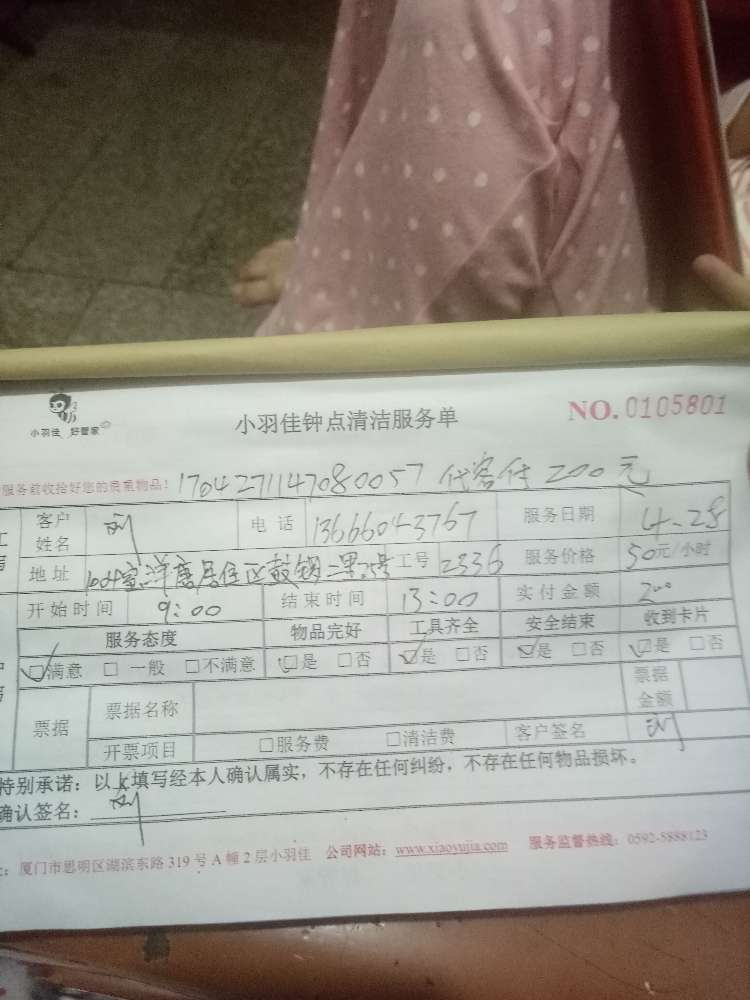 小羽佳 好管家
小羽佳钟点清洁服务单
NO. 0105801
服务前收拾好您的贵重物品! 1704271147080057 代客付 200元
客户姓名 刘 电话 13666043767 服务日期 4.28
地址 1004室洋唐居住区鼓锣二里25号 工号 2336 服务价格 50元/小时
开始时间 9:00 结束时间 13:00 实付金额 200
服务态度 物品完好 工具齐全 安全结束 收到卡片
☑满意 □一般 □不满意 ☑是 □否 ☑是 □否 ☑是 □否 ☑是 □否
票据 票据名称 票据金额
开票项目 □服务费 □清洁费 客户签名 刘
特别承诺：以上填写经本人确认属实，不存在任何纠纷，不存在任何物品损坏。
确认签名： 刘
厦门市思明区湖滨东路 319 号 A 幢 2 层小羽佳 公司网站：www.xiaoyujia.com 服务监督热线：0592-5888123